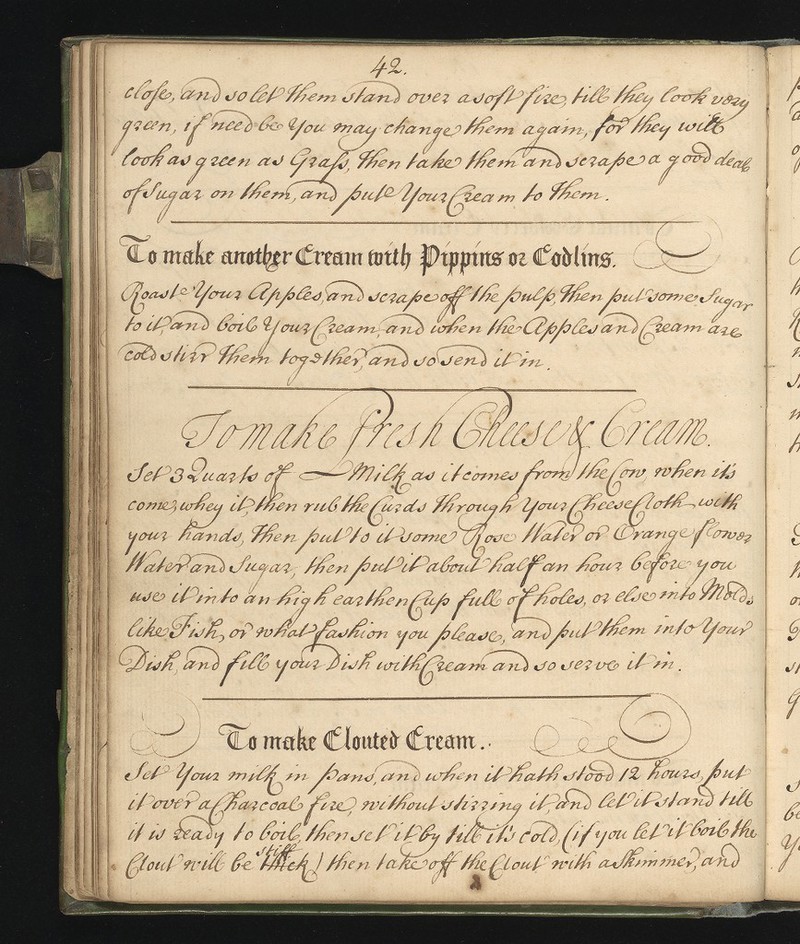 42.
close, and so let them stand over a soft fire, till they look very
green, if need be You may change them again, for they will
look as green as Grass, then take them and scrape a good deal
of Sugar on them, and put Your Cream to them.
To make another Cream with Pippins or Codlins.
Roast Your Apples, and scrape off the pulp, Then put some Sugar
to it, and boil Your Cream, and when the Apples and Cream are
cold stirr them together, and so send it in.
To make fresh Cheese & Cream.
Set 3 Quarts of — Milk as it comes from the Cow, when it's
come, whey it, then rub the Curds through Your Cheese Cloth with
your hands, Then put to it some Rose Water or Orange flower
Water and Sugar, then put it about half an hour before you
use it into an high earthen Cup full of holes, or else into Molds
like Fish, or what fashion you please, and put them into Your
Dish, and fill your Dish with Cream and so serve it in.
To make Clouted Cream.
Set Your milk in pans, and when it hath stood 12 hours, put
it over a Charcoal fire, without stirring it and let it stand till
it is ready to boil, then set it by till it's cold, (if you let it boil the
stiff
Clout will be thick) then take off the Clout with a Skimmer, and